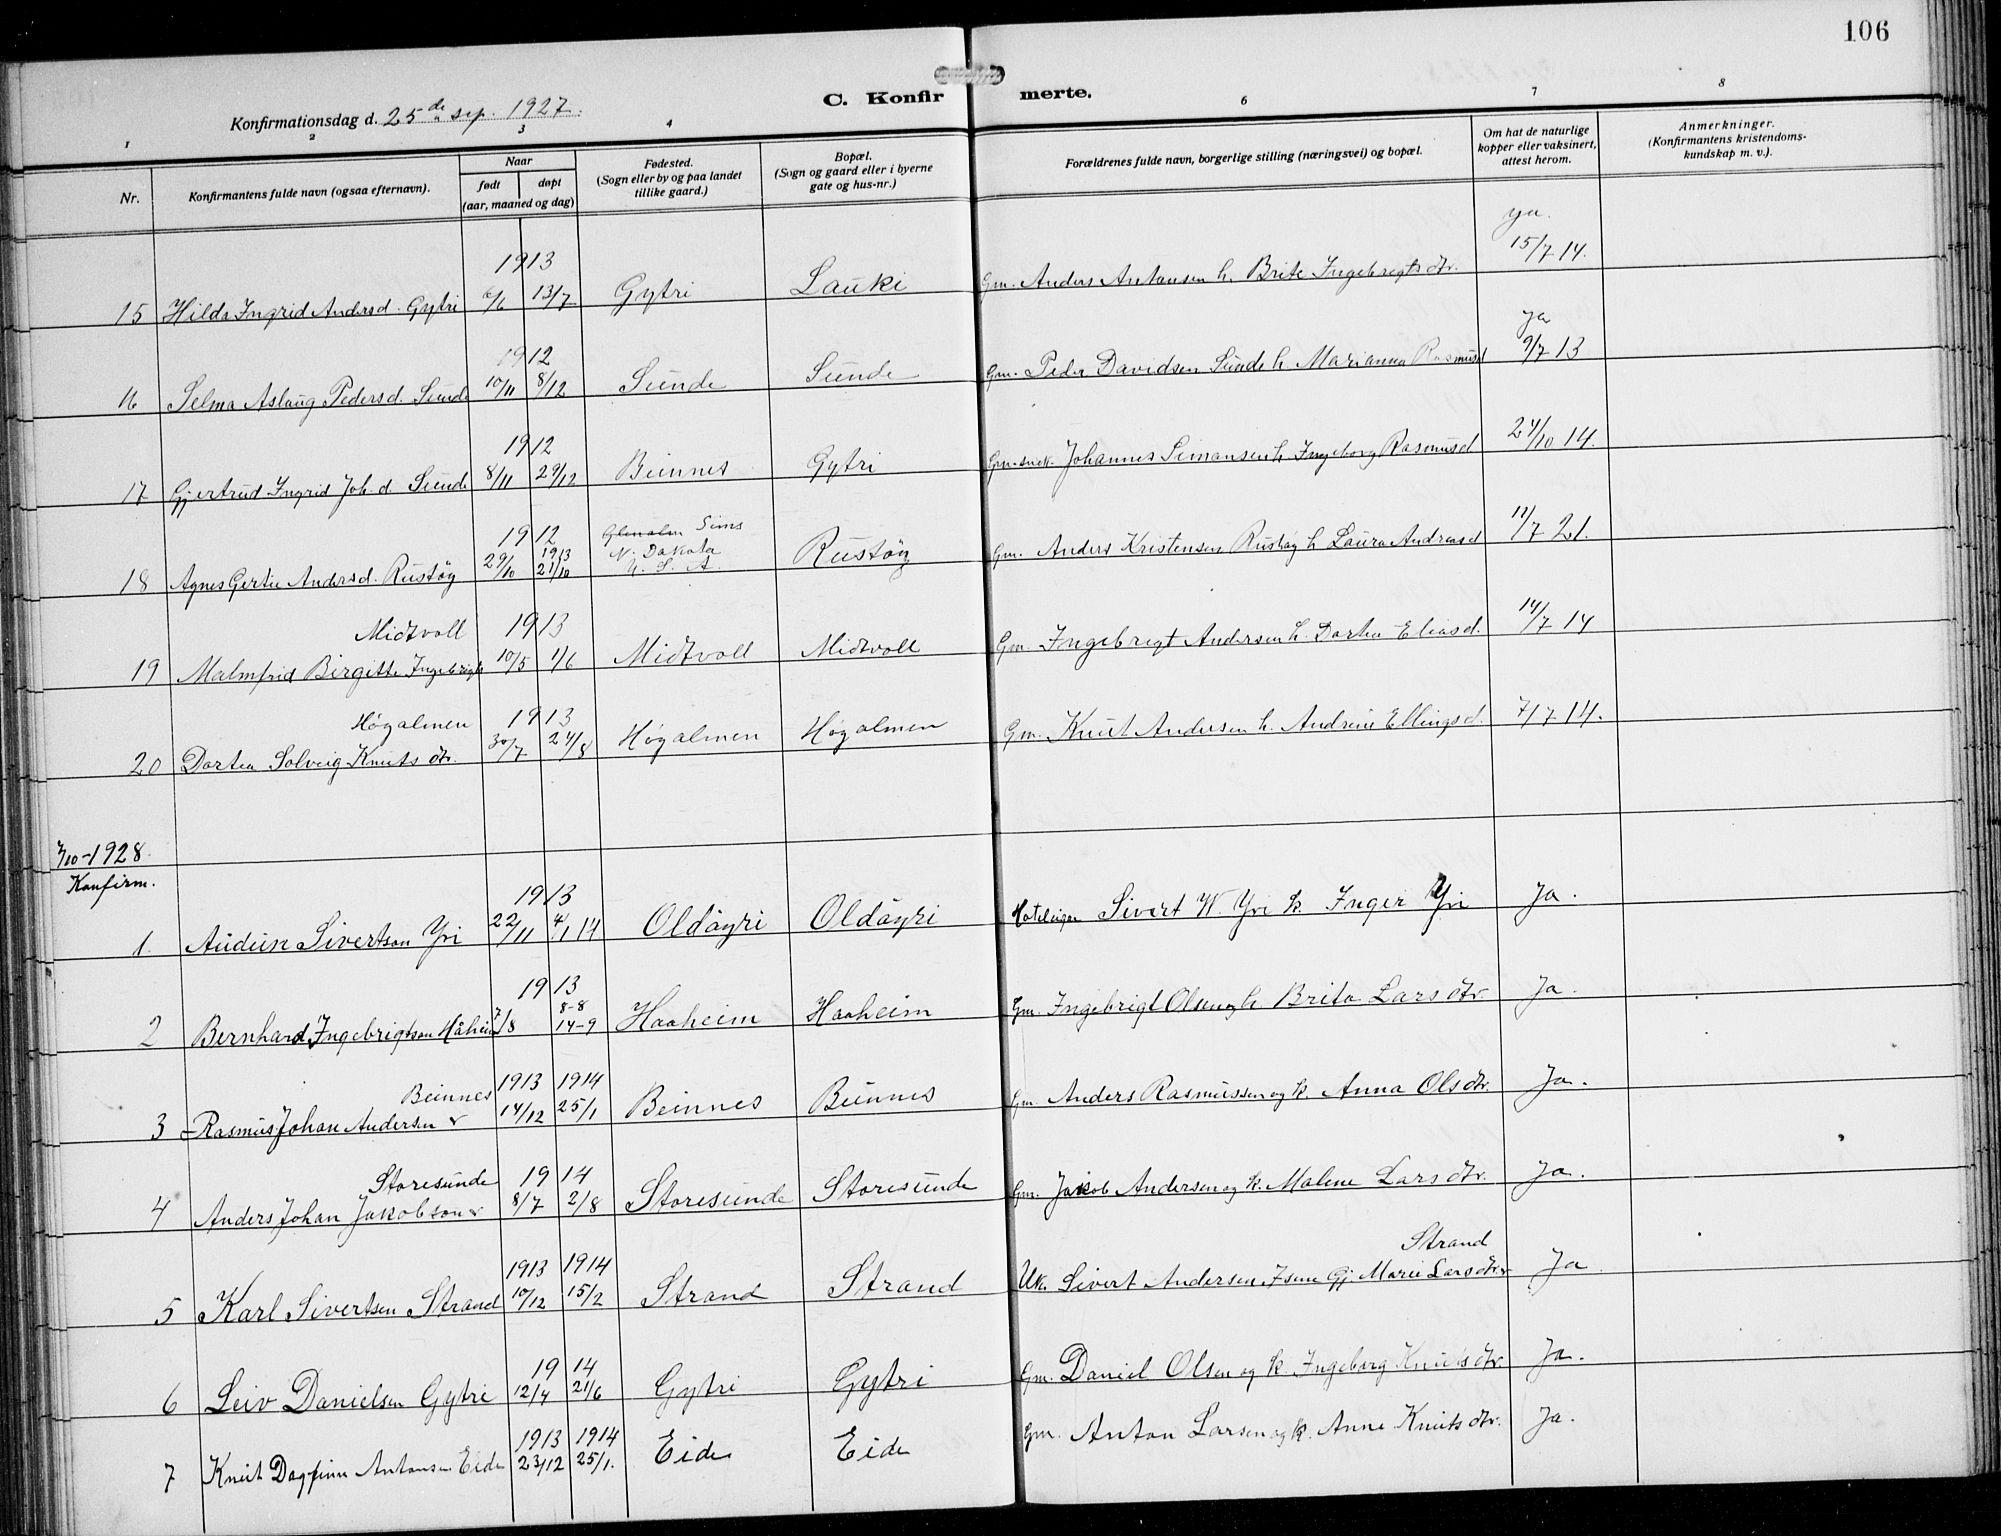 106
C. Konfirmerte.
Konfirmationsdag d. 25de sep. 1927.
1 2 3 4 6 7 8
Nr.
Konfirmantens fulde navn (ogsaa efternavn).
Naar
født døpt
(aar, maaned og dag)
Fødested.
(Sogn eller by og paa landet
tillike gaard.)
Bopæl.
(Sogn og gaard eller i byerne
gate og hus-nr.)
Forældrenes fulde navn, borgerlige stilling (næringsvei) og bopæl.
Om hat de naturlige
kopper eller vaksinert,
attest herom.
Anmerkninger.
(Konfirmantens kristendoms-
kundskap m. v.).
1913 ja.
15 Hilda Ingrid Andersd. Gytri 6/6 13/7 Gytri Lauki Gm. Anders Antonsen h. Brite Ingebrigtsdtr. 15/7 14.
1912 ja
16 Selma Aslaug Pedersd. Sunde 10/11 8/12 Sunde Sunde Gm. Peder Davidsen Sunde h. Marianna Rasmusd 9/7 13
1912
17 Gjertrud Ingrid Joh.d. Sunde 8/11 29/12 Beinnes Gytri Johannes Simansen h. Ingeborg Rasmusd 24/10 14.
1912 Sims
1913 N. Dakota
18 Agnes Gertie Andersd. Rustøy 29/10 21/10 U. S. A. Rustøy Gm. Anders Kristensen Rustøy h. Laura Andreasd 11/7 21.
Midtvoll 1913
19 Malmfrid Birgitte Ingebrigts 10/5 1/6 Midtvoll Midtvoll Gm. Ingebrigt Andersen h. Dortea Eliasd. 14/7 14
Høgalmen 1913
20 Dortea Solveig Knutsdtr. 30/7 24/8 Høgalmen Høgalmen Gm. Knut Andersen h. Andrine Ellingsd. 7/7 14.
7/10-1928.
Konfirm.
1913
1. Audun Sivertson Yri 22/11 4/1 14 Oldøyri Oldøyri Hoteleigar Sivert W. Yri k. Inger Yri Ja.
1913
8-8
2 Bernhard Ingebrigtson Håheim 7/8 14-9 Haaheim Haaheim Gm. Ingebrigt Olsen og k. Brita Larsdtr. Ja.
Beinnes 1913 1914
3 Rasmus Johan Andersen 14/12 25/1 Beinnes Beinnes Gm. Anders Rasmussen og k. Anna Olsdtr. Ja.
Storesunde 1914
4 Anders Johan Jakobson 8/7 2/8 Storesunde Storesunde Gm. Jakob Andersen og k. Malene Larsdtr. Ja.
1913 1914 Strand
5 Karl Sivertsen Strand 10/12 15/2 Strand Strand Uk. Sivert Andersen Gj. Marie Larsdtr. Ja
1914
6 Leiv Danielsen Gytri 12/4 21/6 Gytri Gytri Gm. Daniel Olsen og k. Ingeborg Knutsdtr. Ja.
1913 1914
7 Knut Dagfinn Antonsen Eide 23/12 25/1. Eide Eide Gm. Anton Larsen og k. Anne Knutsdtr. Ja.